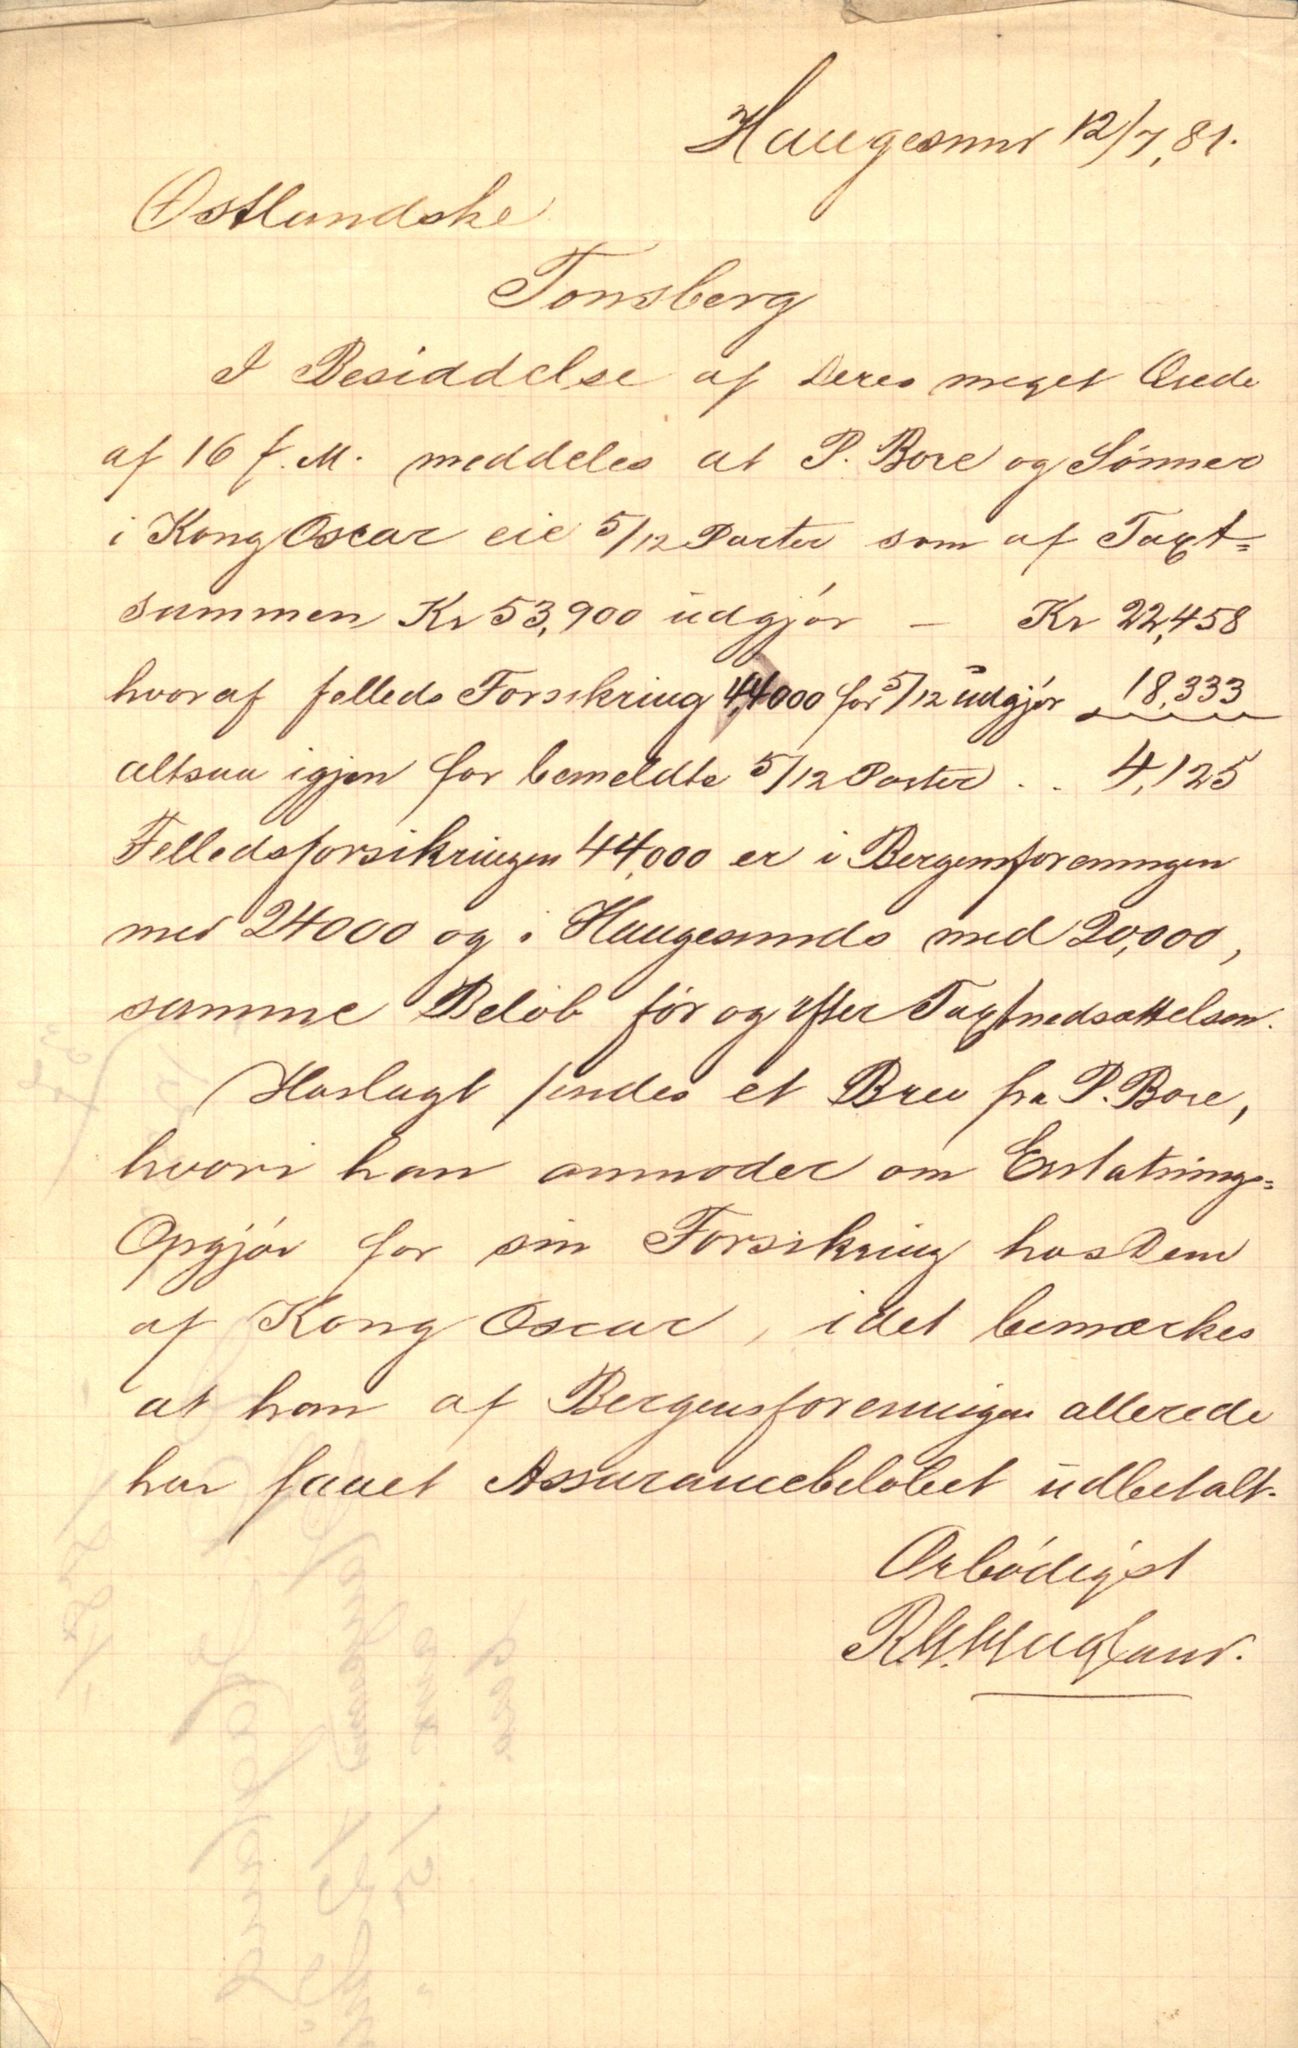 Haugesund 12/7, 81.
Østlandske
Tønsberg
I Besiddelse af Deres meget Ærede
af 16 f. M. meddeles at P. Bore og Sønner
i Kong Oscar eie 5/12 Parter som af Taxt=
summen Kr 53,900 udgjør — Kr 22,458
hvoraf felleds Forsikring 44,000 for 5/12 udgjør 18,333
altsaa igjen for bemeldte 5/12 Parter . . 4,125
Felledsforsikringen 44,000 er i Bergensforeningen
med 24000 og i Haugesunds med 20,000,
samme Beløb før og efter Taxtnedsættelsen.
Hoslagt sendes et Brev fra P. Bore,
hvori han anmoder om Erstatnings=
Opgjør for sin Forsikring hos Dem
af Kong Oscar, idet bemærkes
at han af Bergensforeningen allerede
har faaet Assurancebeløbet udbetalt.
Ærbødigst